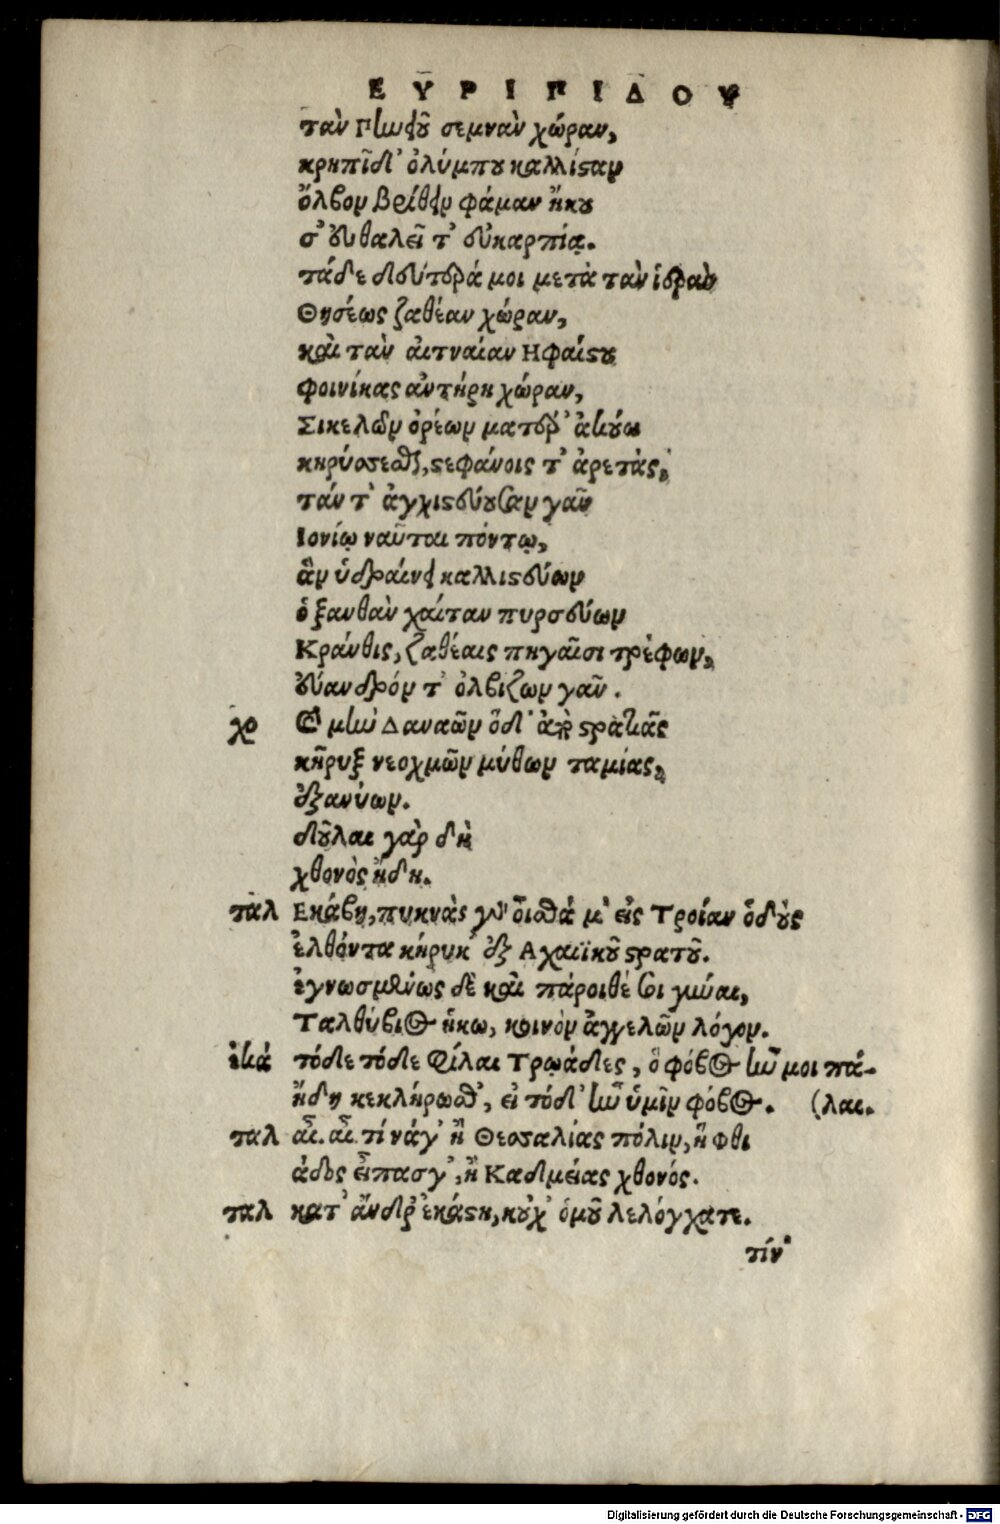 ΕΥΡΙΠΙΔΟΥ
τὰν Πηνειοῦ σεμνὰν χώραν,
κρηπῖδ' ὀλύμπου καλλίσταν
ὄλβον βρίθειν φάμαν ἤκου
σ' εὐθαλεῖ τ' εὐκαρπίᾳ.
τάδε δεύτερά μοι μετὰ τὰν ἱερὰν
Θησέως ζαθέαν χώραν,
καὶ τὰν αἰτναίαν Ηφαίστου
Φοινίκας ἀντήρη χώραν,
Σικελῶν ὀρέων ματέρ' ἀκούω
κηρύσσεσθαι, στεφάνοις τ' ἀρετὰς,
τάν τ' ἀγχιστεύουσαν γᾶν
Ιονίῳ ναῦται πόντῳ,
ἃν ὑδραίνει καλλιστεύων
ὁ ξανθὰν χαίταν πυρσεύων
Κράνθις, ζαθέαις πηγαῖσι τρέφων,
εὔανδρόν τ' ὀλβίζων γᾶν.
χο Καὶ μὴν Δαναῶν ὅδ' ἀπὸ στρατιᾶς
κῆρυξ νεοχμῶν μύθων ταμίας,
ἐξανύων.
δοῦλαι γὰρ δὴ
χθονὸς ἤδη.
ταλ Εκάβη, πυκνὰς γὰρ οἶσθά μ' εἰς Τροίαν ὁδοὺς
ἐλθόντα κήρυκ' ἐξ Αχαιϊκοῦ στρατοῦ.
ἐγνωσμένως δὲ καὶ πάροιθέ σοι γύναι,
Ταλθύβιος ἥκω, κοινὸν ἀγγελῶν λόγον.
ἑκά τόδε τόδε Φίλαι Τρωάδες, ὁ φόβος ἦν μοι πά-
ἤδη κεκλήρωσθ', εἰ τόδ' ἦν ὑμῖν φόβος. (λαι.
ταλ αἶ. αἶ. τίνά γ' ἢ Θεσσαλίας πόλιν, ἢ Φθι
άδος εἶπας γ', ἢ Καδμείας χθονός.
ταλ κατ' ἄνδρ' ἑκάστη, κοὐχ' ὁμοῦ λελόγχατε.
τίν'
Digitalisierung gefördert durch die Deutsche Forschungsgemeinschaft - DFG